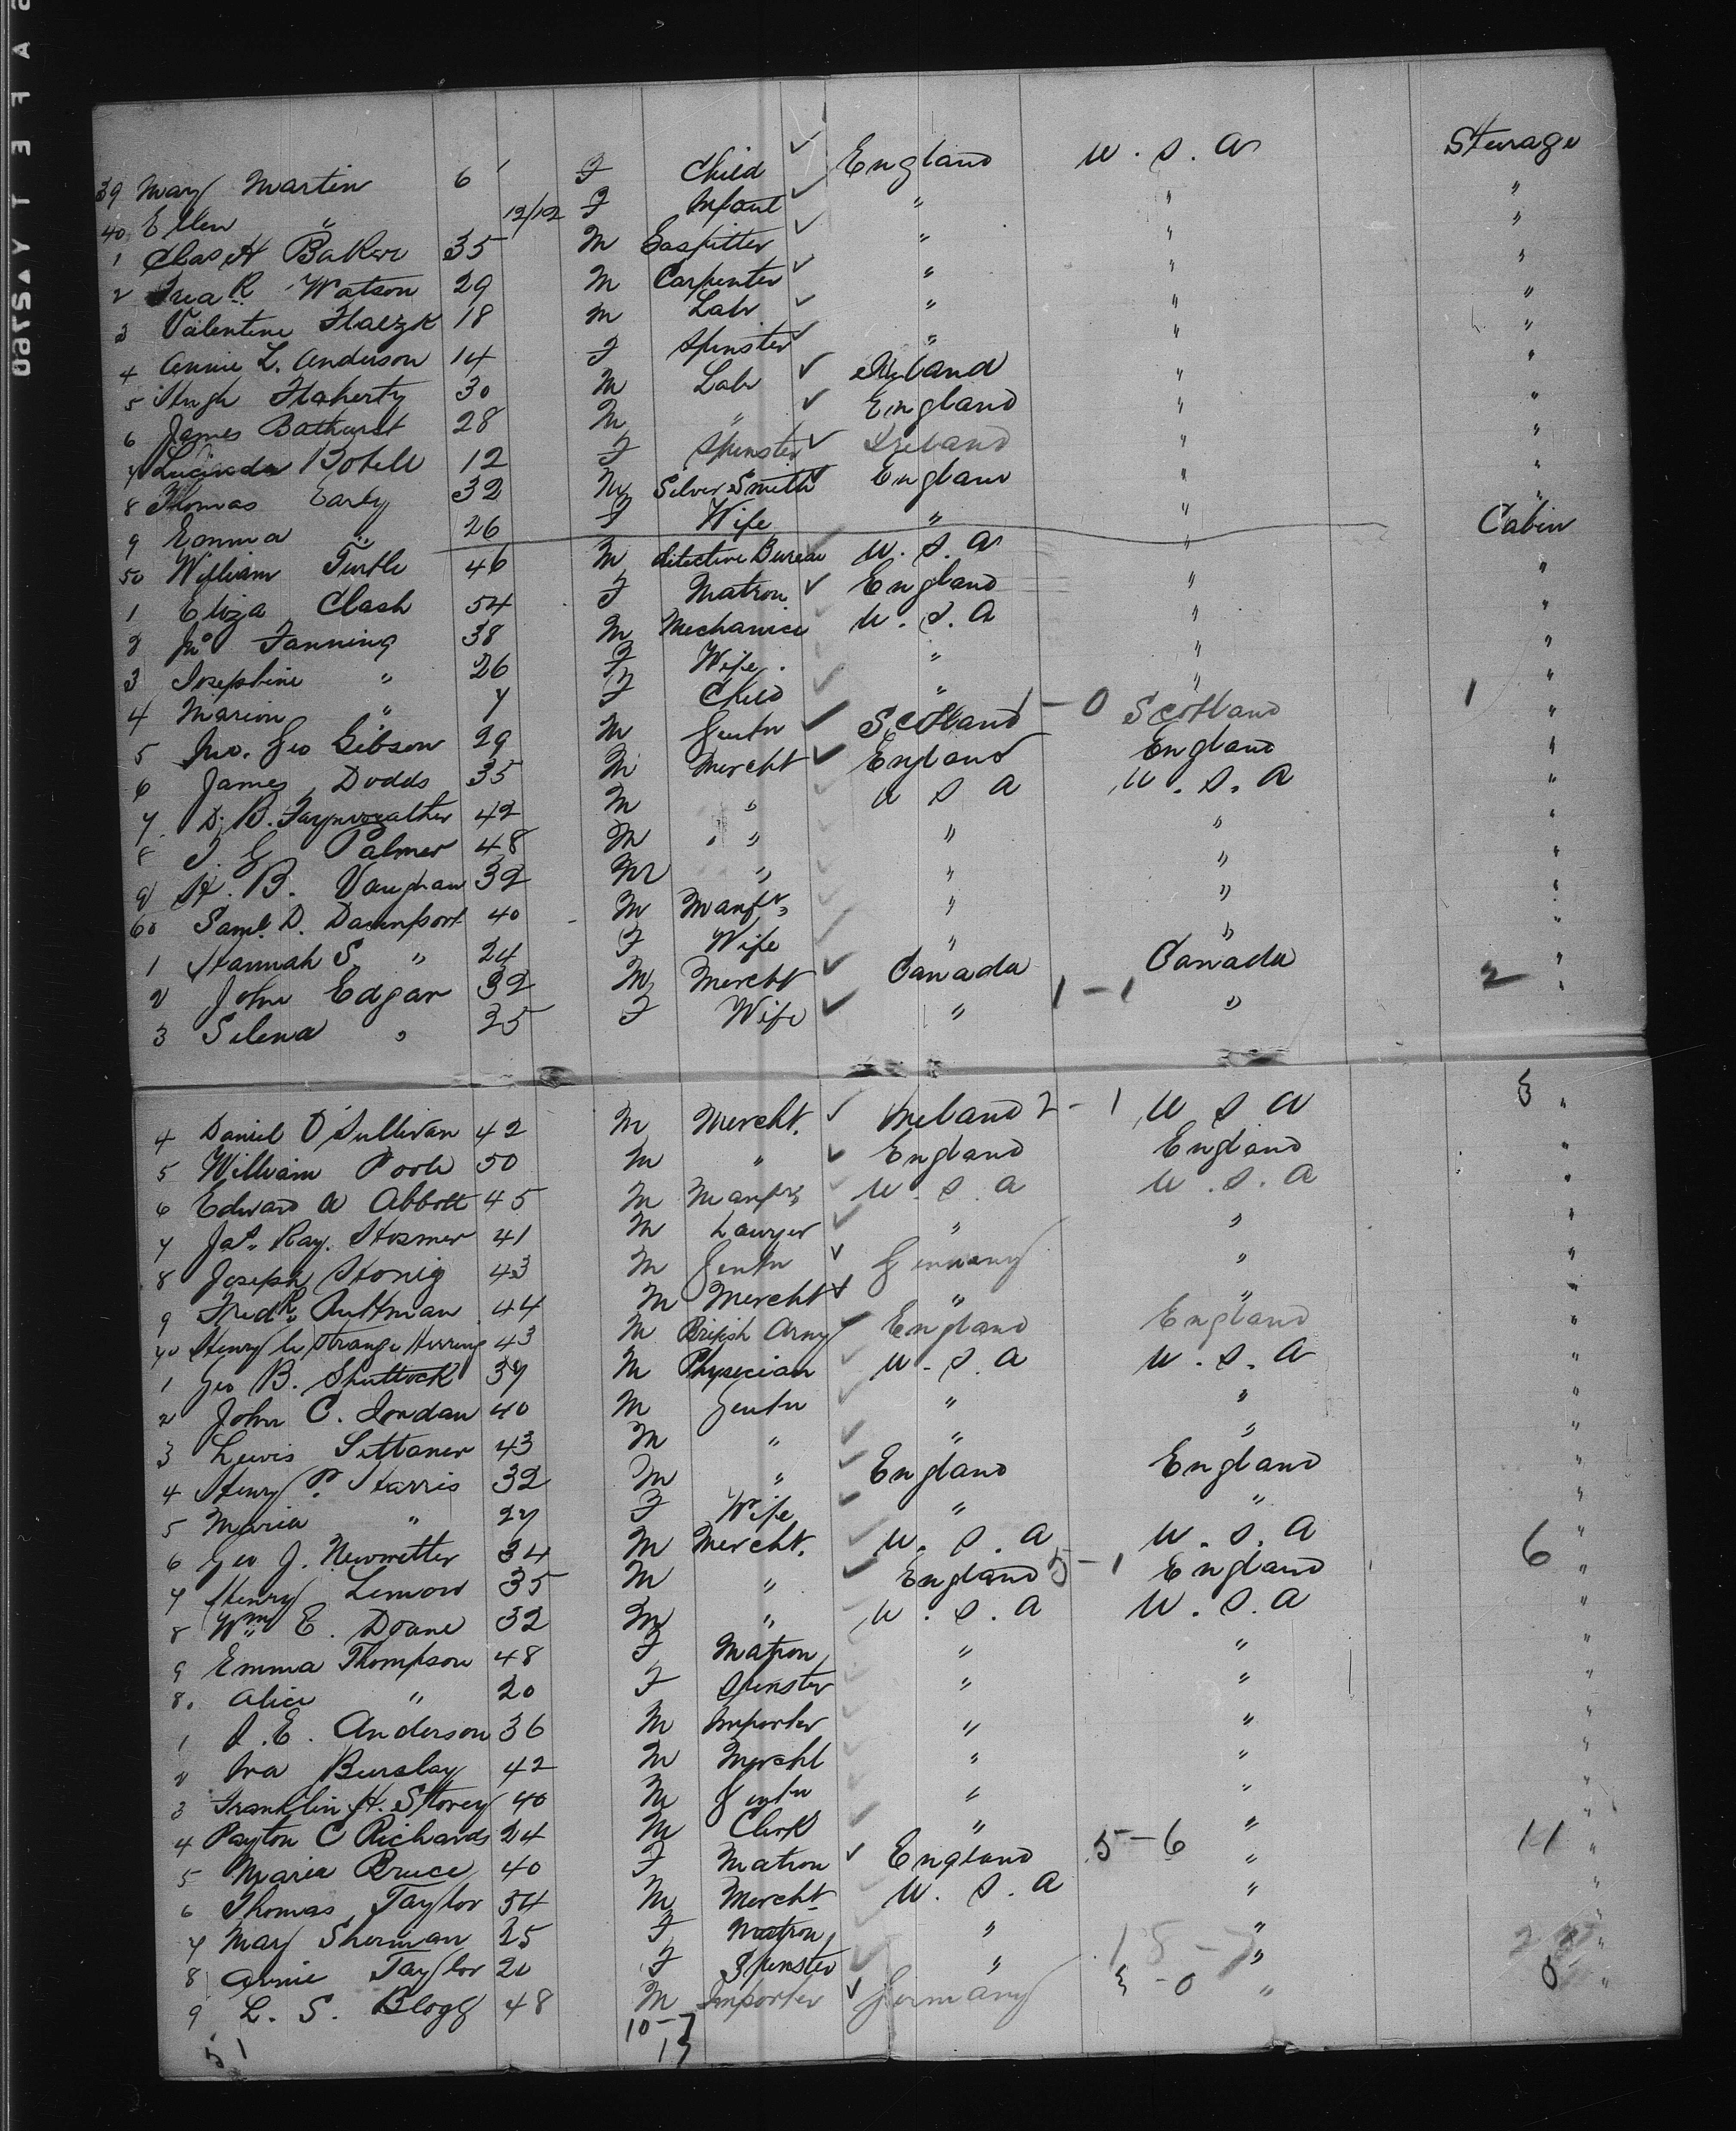 39 Mary Martin 6 F Child England U.S.A Steerage
40 Ellen " 12/12 F Infant " " "
1 Chas H Baker 35 M Gasfitter " " "
2 Watson 29 M Carpenter " " "
3 Valentine 18 M Labr " " "
4 Annie L. Anderson 14 F Spinster " " "
5 Hugh Flaherty 30 M Labr Ireland " "
6 James Bathurst 28 M " England " "
7 Lucinda 12 F Spinster Ireland " "
8 Thomas Early 32 M Silver Smith England " "
9 Emma " 26 F Wife " " "
50 William Turtle 46 M detective Bureau U.S.A " Cabin
1 Eliza Clash 54 F Matron England " "
2 Jno Fanning 38 M Mechanic U.S.A " "
3 Josephine " 26 F Wife " " "
4 Marion " 7 F Child " " "
5 Jno. Geo Gibson 29 M Gentn Scotland 1-0 Scotland 1 "
6 James Dodds 35 M Mercht England England "
7 D. B. 42 M " U S A U.S.A "
8 Palmer 48 M " " " "
9 H. B. Vaughan 32 M " " " "
60 Saml. D. Davenport 40 M Manfr " " "
1 Hannah S. " 24 F Wife " " "
2 John Edgar 32 M Mercht Canada Canada "
3 Selena " 25 F Wife " 1-1 " 2 "
4 Daniel O'Sullivan 42 M Mercht. Ireland 2-1 U S A 3 "
5 William Poole 50 M " England England "
6 Edward A Abbott 45 M Manfr U.S.A U.S.A "
7 Jas. Ray. Stosmer 41 M Lawyer " " "
8 Joseph 43 M Gentn Germany " "
9 Fredk Ruttman 44 M Mercht " " "
70 Henry le Strange Herring 43 M British Army England England "
1 Geo B. Shattock 37 M Physician U.S.A U.S.A "
2 John C. Jordan 40 M Gentn " " "
3 Lewis 43 M " " " "
4 Henry P. Harris 32 M " England England "
5 Maria " 27 F Wife " " "
6 Geo J. 34 M Mercht. U.S.A U.S.A "
7 Henry Lemon 35 M " England 5-1 England 6 "
8 Wm E. Doane 32 M " U.S.A U.S.A "
9 Emma Thompson 48 F Matron " " "
80 Alice " 20 F Spinster " " "
1 E. Anderson 36 M Importer " " "
2 Ira Bursley 42 M Mercht " " "
3 Franklin H. Storey 40 M Gentn " " "
4 Payton C Richards 24 M Clerk " " "
5 Maria Bruce 40 F Matron England 5-6 " 11 "
6 Thomas Taylor 34 M Mercht U.S.A " "
7 Mary Sherman 25 F Matron " " "
8 Annie Taylor 20 F Spinster " 15-7 " "
9 L. S. Blogg 48 M Importer Germany 3-0 " "
51 10-7
13